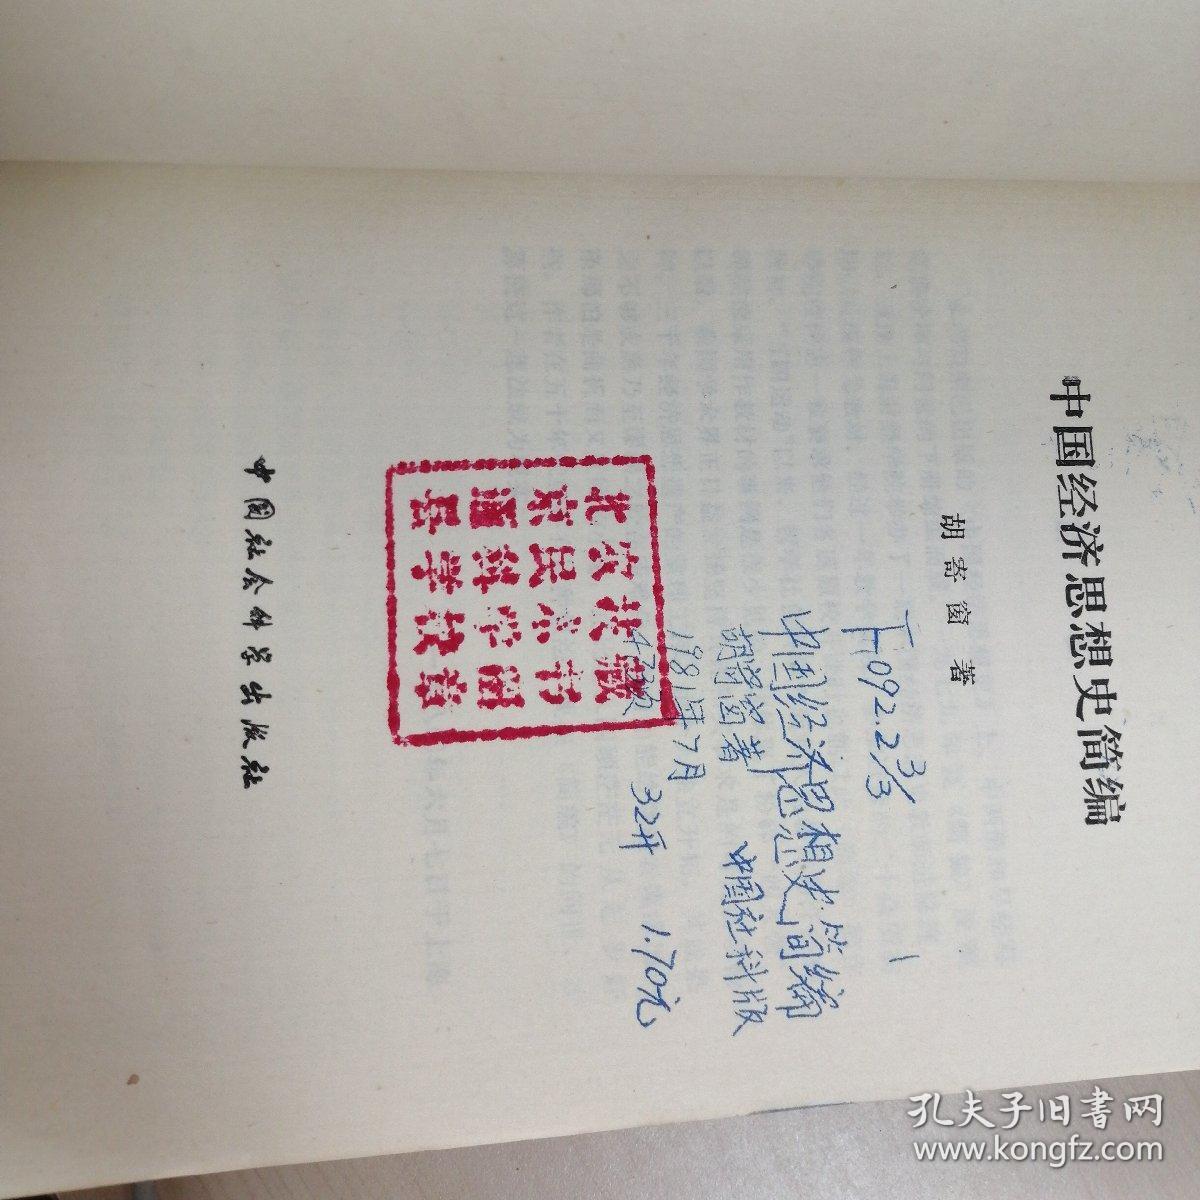 中国经济思想史简编
胡寄窗 著
F092.2 3/3
1
中国经济思想史简编
胡寄窗著 中国社科版
1981年7月
32开 1.70元
北京通县
农民科学
技术学校
藏书图章
中国社会科学出版社
孔夫子旧书网
www.kongfz.com